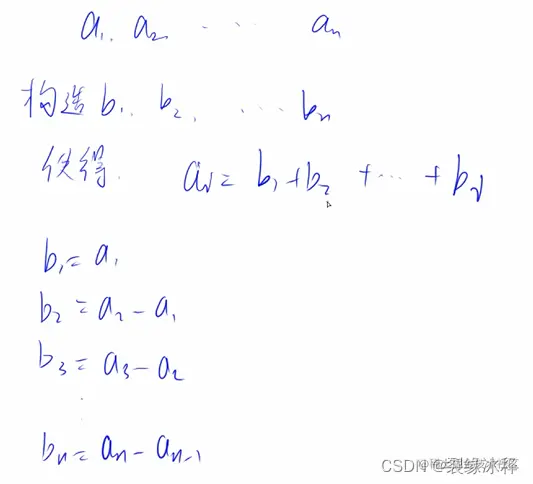 a₁, a₂ ⋯ aₙ
构造 b₁, b₂, ⋯ bₙ
使得 aᵢ = b₁ + b₂ + ⋯ + bᵢ
b₁ = a₁
b₂ = a₂ - a₁
b₃ = a₃ - a₂
⋮
bₙ = aₙ - aₙ₋₁
CSDN